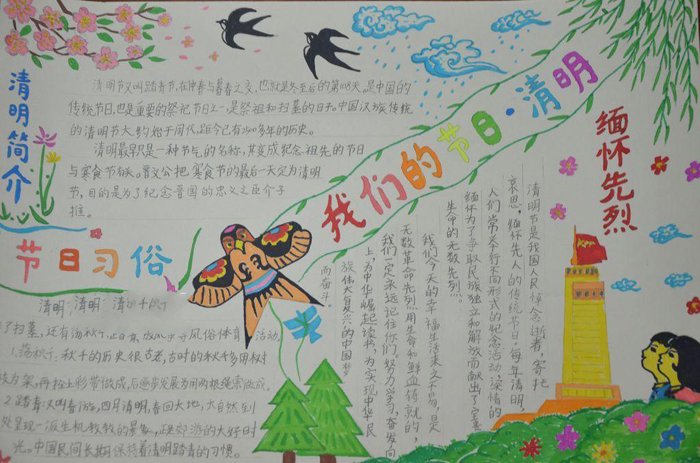 清明简介
清明节又叫踏青节,在仲春与暮春之交,也就是冬至后的第108天,是中国的
传统节日,也是重要的祭祀节日之一,是祭祖和扫墓的日子。中国汉族传统
的清明节大约始于周代,距今已有二千五百多年的历史。
清明最早只是一种节气的名称,其变成纪念祖先的节日
与寒食节有关。晋文公把寒食节的最后一天定为清明
节,目的是为了纪念晋国的忠义之臣介子
推。
我们的节日·清明
缅怀先烈
清明节是我国人民悼念逝者,寄托
哀思,缅怀先人的传统节日,每年清明,
人们常常举行不同形式的纪念活动,深情的
缅怀为了争取民族独立和解放而献出了宝贵
生命的无数先烈。
我们今天的幸福生活来之不易,是
无数革命先烈用生命和鲜血铸就的,
我们一定永远记住你们,努力学习,奋发向
上,为中华崛起读书,为实现中华民
族伟大复兴的中国梦
而奋斗。
节日习俗
清明 清明
了扫墓,还有荡秋千,风俗体育活动。
1.荡秋千,秋千的历史很古老,古时的秋千多用树
为架,再拴上彩带做成,后逐步发展为用两根绳索做成。
2.踏青又叫春游,四月清明,春回大地,大自然到
处呈现一派生机勃勃的景象,正是郊游的大好时
光。中国民间长期保持着清明踏青的习惯。